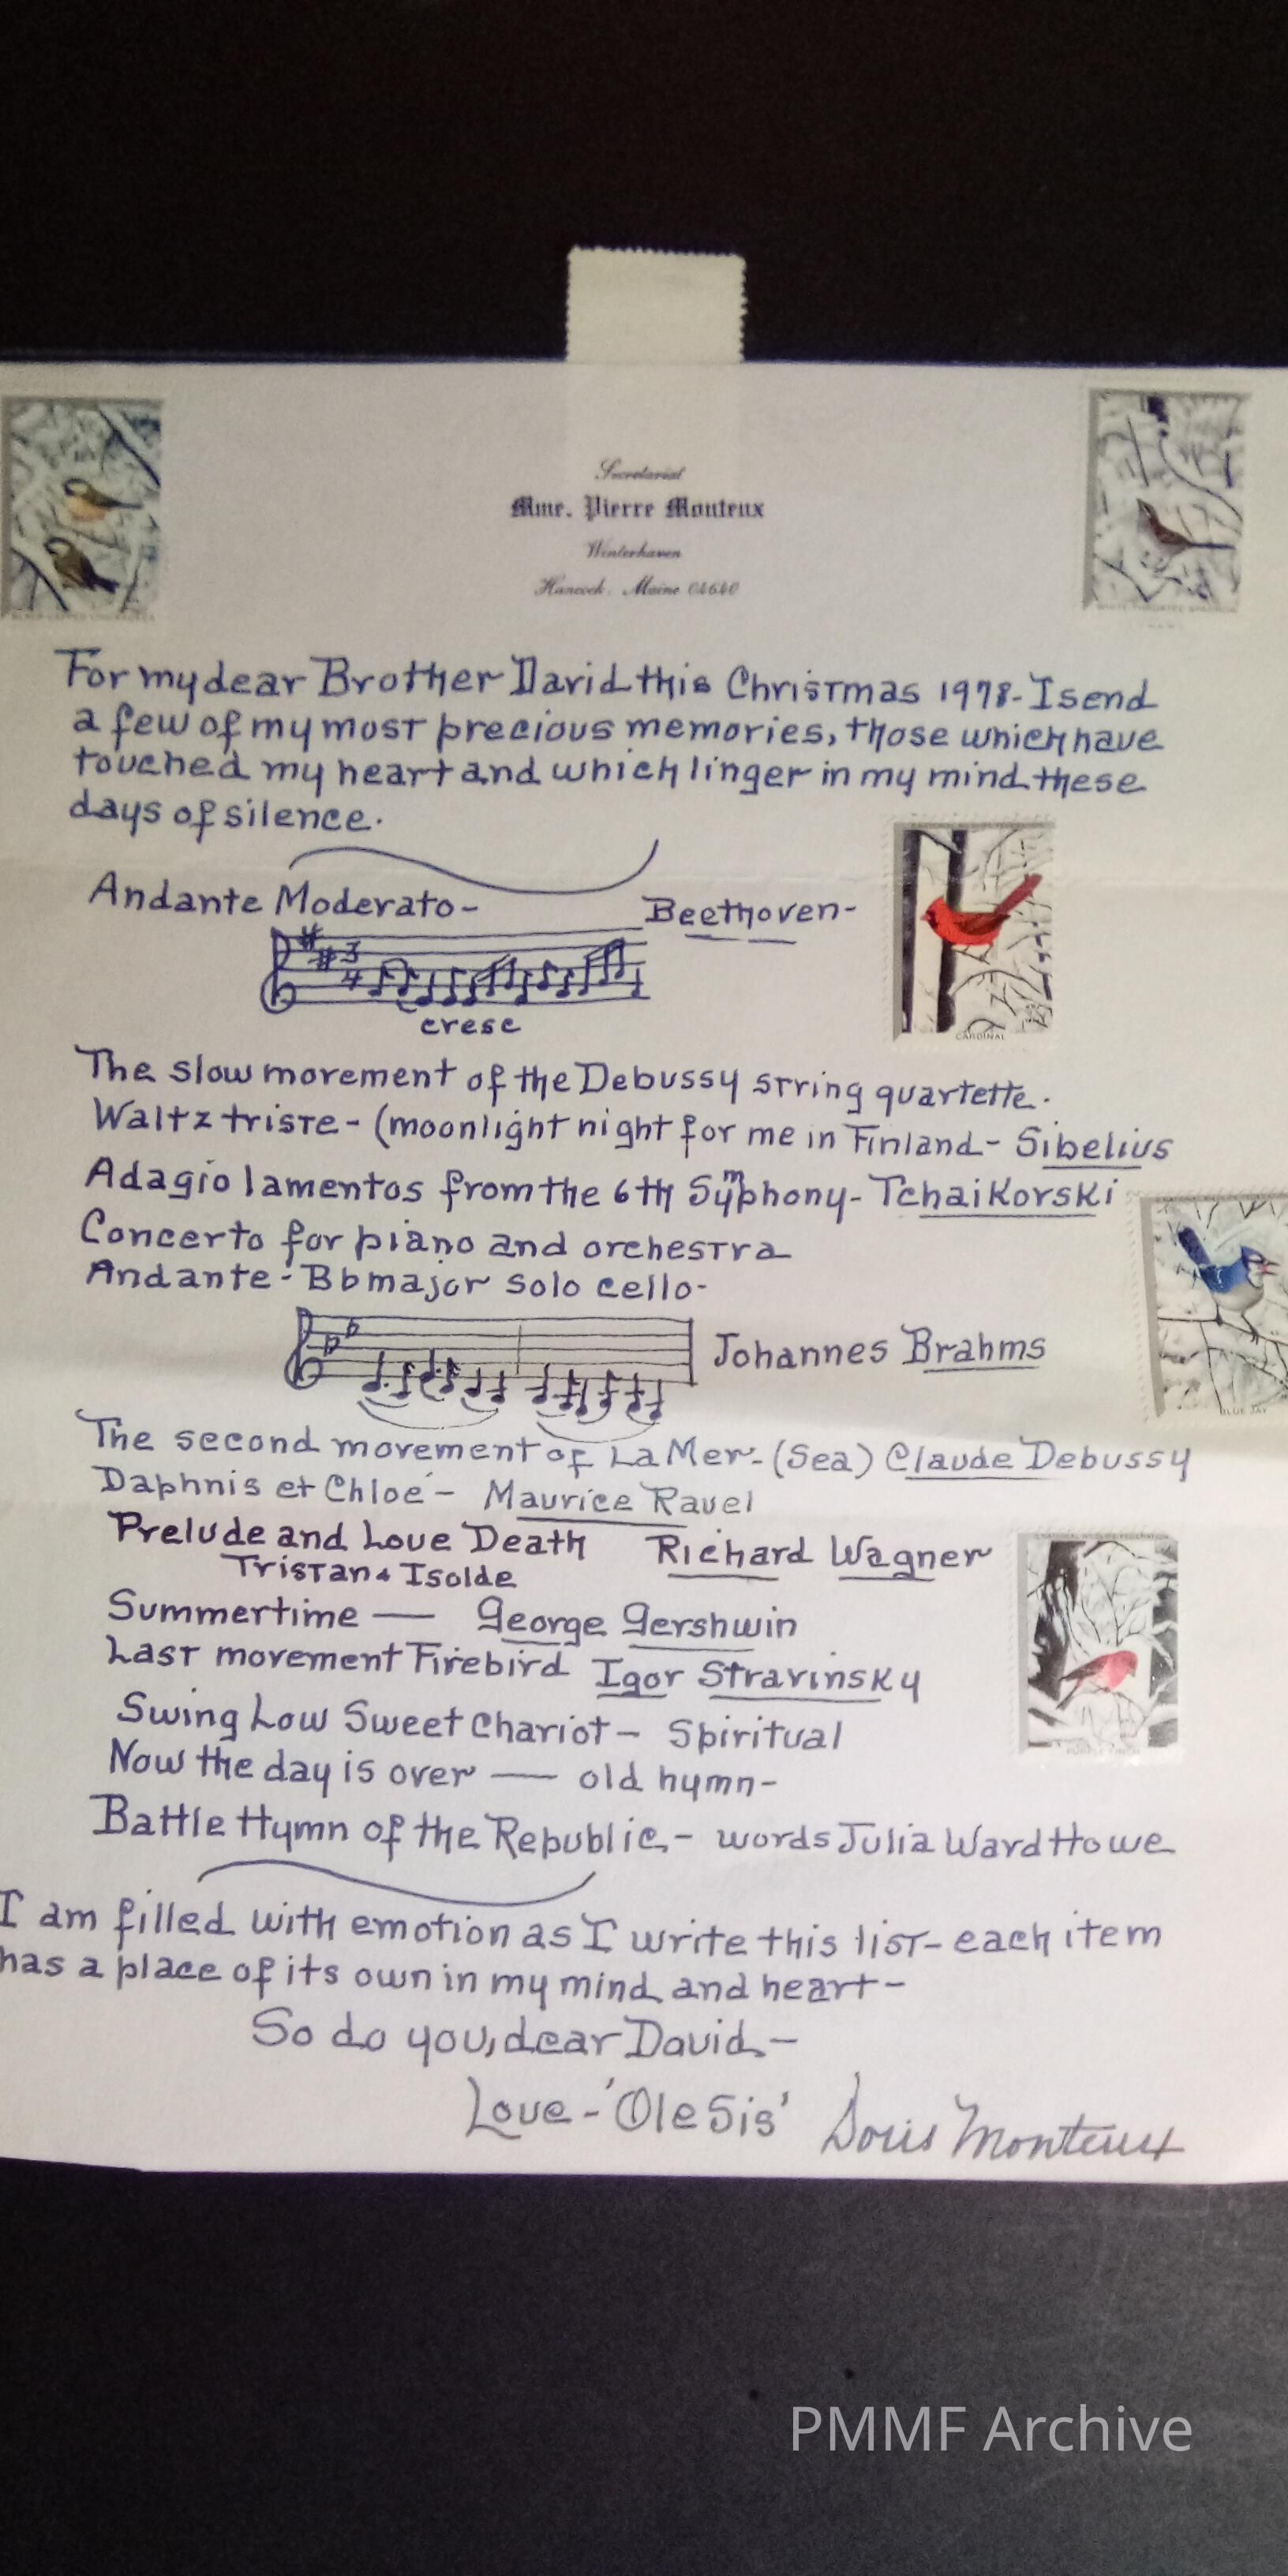 Secretariat
Mme. Pierre Monteux
Winterhaven
Hancock, Maine 04640
For my dear Brother David this Christmas 1978- I send
a few of my most precious memories, those which have
touched my heart and which linger in my mind these
days of silence.
Andante Moderato- Beethoven-
3
4
cresc
CARDINAL
The slow movement of the Debussy string quartette.
Waltz triste- (moonlight night for me in Finland- Sibelius
Adagio lamentos from the 6th Symphony- Tchaikovski
Concerto for piano and orchestra
Andante- Bb major solo cello-
Johannes Brahms
BLUE JAY
The second movement of La Mer- (Sea) Claude Debussy
Daphnis et Chloé- Maurice Ravel
Prelude and Love Death Richard Wagner
Tristan & Isolde
Summertime — George Gershwin
Last movement Firebird Igor Stravinsky
Swing Low Sweet Chariot- Spiritual
Now the day is over — old hymn-
PURPLE FINCH
Battle Hymn of the Republic- words Julia Ward Howe
I am filled with emotion as I write this list- each item
has a place of its own in my mind and heart-
So do you, dear David-
Love-'Ole Sis' Doris Monteux
PMMF Archive